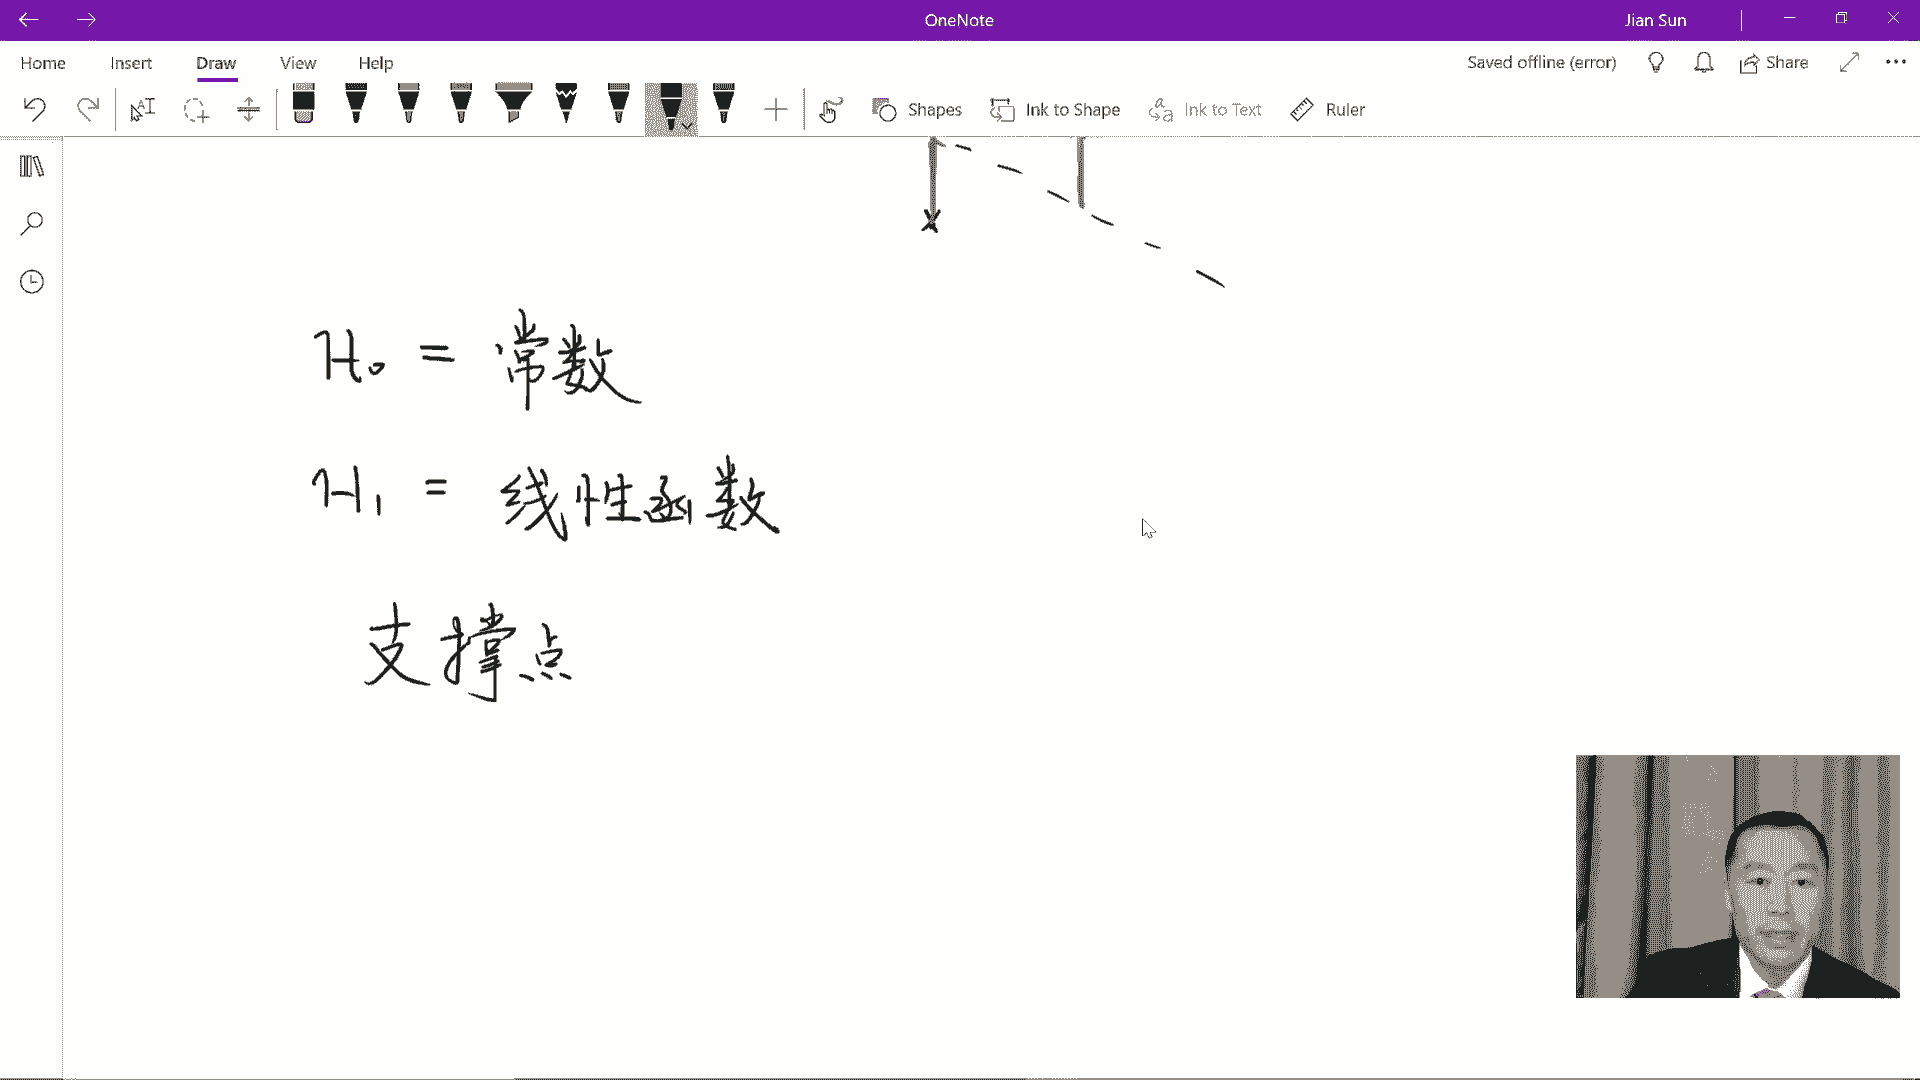 OneNote
Jian Sun
Home Insert Draw View Help
Saved offline (error)
Share
Shapes
Ink to Shape
Ink to Text
Ruler
x
H₀ = 常数
H₁ = 线性函数
支撑点